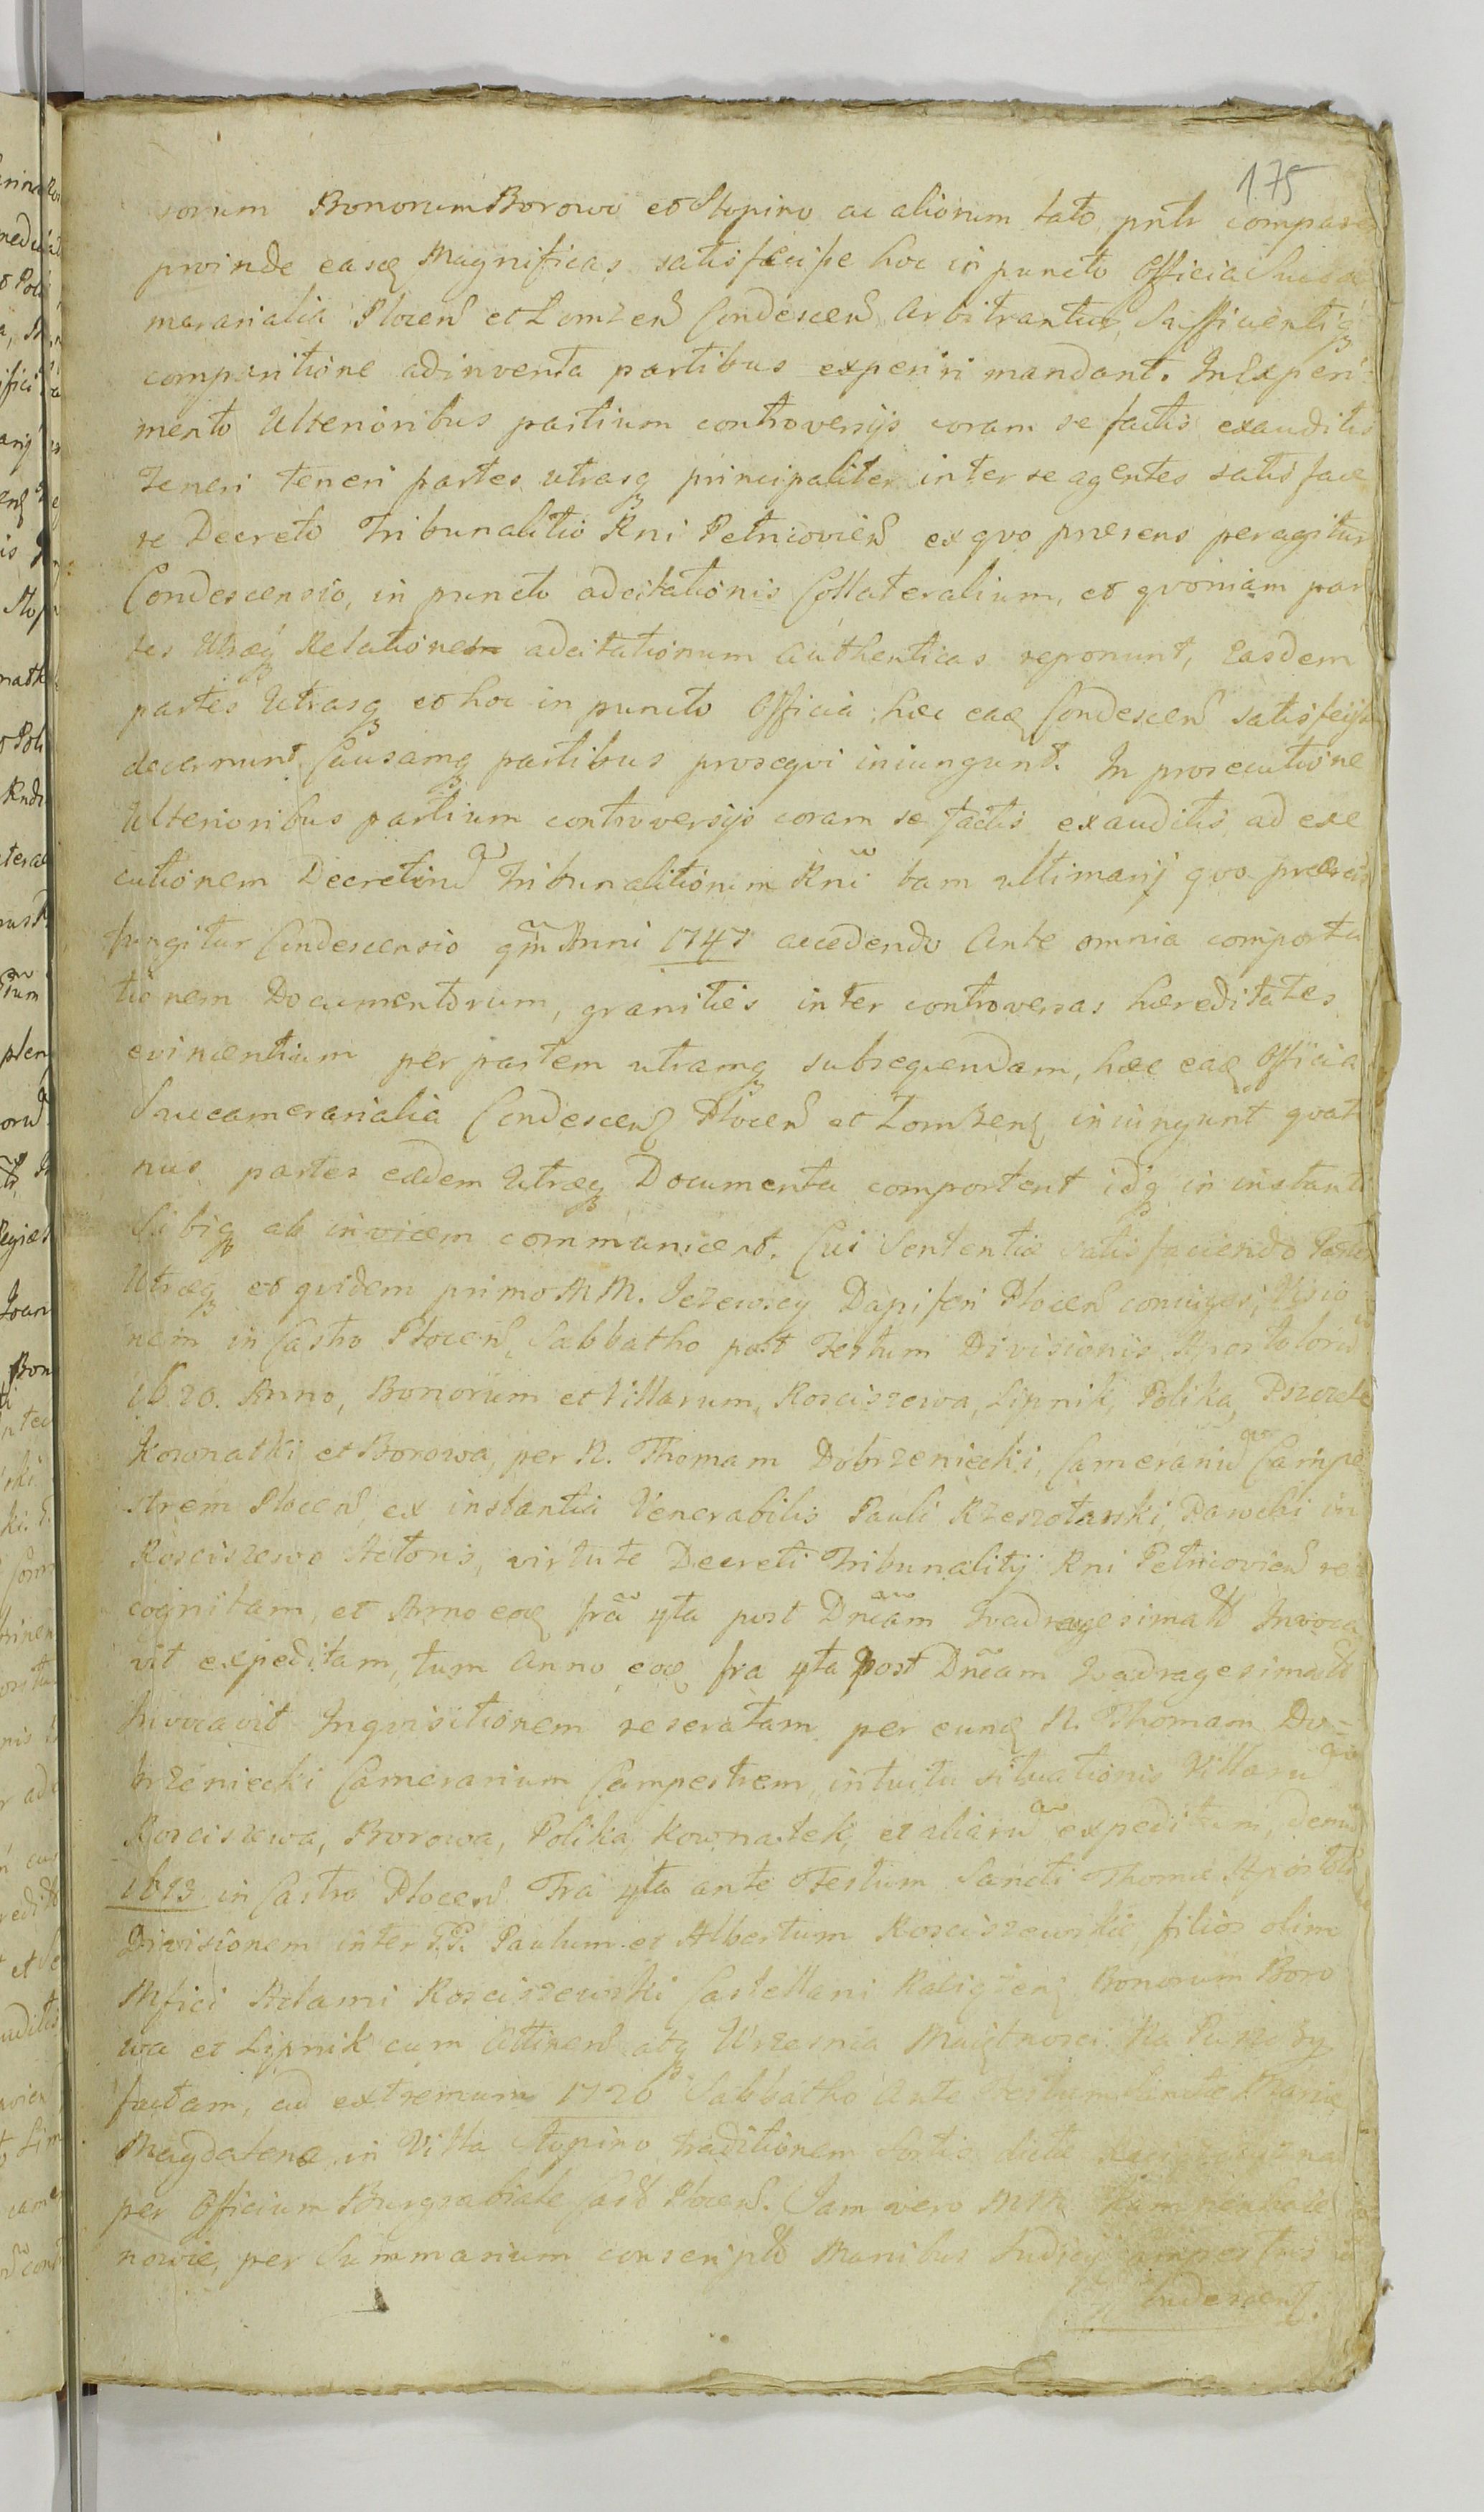 175
sorum Bonorum Borowo et Stupino ac aliorum tato pntr compare
proinde easdę Magnificas satisfecisse hoc in puncto Officia Succa
merarialia Plocen et Lomzen Condescen Arbitrantur, Sufficientiq
comparitione adinventa partibus experiri mandant. In Experi
mento Ulterioribus partium controversijs coram se factis exauditis
teneri teneri partes utrasq principaliter inter se agentes satisface
re Decreto Tribunalitio Rni Petricovien ex qvo præsens peragitur
Condescensio, in puncto adcitationis Collateralium, et qvoniam par
tes Utræq Relationes adcitationum authenticas reponunt, Easdem
partes Utrasq et hoc in puncto Officia hæc eadę Condescen satisfecisse
decernunt Causamq partibus proseqvi iniungunt. In prosecutione
Ulterioribus partium controversijs coram se factis exauditis ad exe
cutionem Decretorū Tribunalitiorum Rni tam ultimarij qvo præsens
fungitur Condescensio qm Anni 1747 accedendo Ante omnia comporta
tionem Documentorum, granities inter controversas hæreditates
evincentium per partem utramq subseqvendam, hæc eadę Officia
Succamerarialia Condescen Plocen et Lomzen iniungunt qvate
nus partes eædem Utræq Documenta comportent idq in instanti
Sibiq ab invicem communicent. Cui Sententiæ satisfaciendo Partes
Utræq et qvidem primo MM. Jezewscy Dapiferi Plocen coniuges, Visio
nem in Castro Plocen Sabbatho post Festum Divisionis Apostolorū
1620. Anno, Bonorum et Villarum, Rosciszewa, Lipnik, Polika, Pszczele
Kownatki et Borowa, per N. Thomam Dobrzeniecki, Camerariū Campe
strem Plocen, ex instantia Venerabilis Pauli Rzeszotarski, Parochi in
Rosciszewo Actoris, virtute Decreti Tribunalitij Rni Petricovien re
cognitam, et Anno eoę fra 4ta post Dnicam Qvadragesimalē Invoca
vit expeditam, tum anno eoę fra 4ta post Dnicam Qvadragesimalē
Invocavit Inqvisitionem reseratam per eunę N. Thomam Do=
brzeniecki Camerarium Campestrem, intuitu situationis Villarū
Rosciszewa, Borowa, Polika, Kownatek, et aliarū expeditam, demū
1613 in Castro Plocen Fra 4ta ante Festum Sancti Thomæ Apostoli
Divisionem inter G.G. Paulum et Albertum Rosciszewskie, filios olim
Mfici Adami Rosciszewski Castellani Raciązen Bonorum Boro
wa et Lipnik cum Attinen atq Wrzesnia Maiętnosci Na Puszczy
factam, ad extremum 1726 Sabbatho Ante Festum Sanctæ Mariæ
Magdalenæ in Villa Stupino traditionem Sortis dictæ
per Officium Burgrabiale Castē Plocen. Jam vero MM.
nowie, per Summarium conscriptū Manibus Judicij
Condescen.